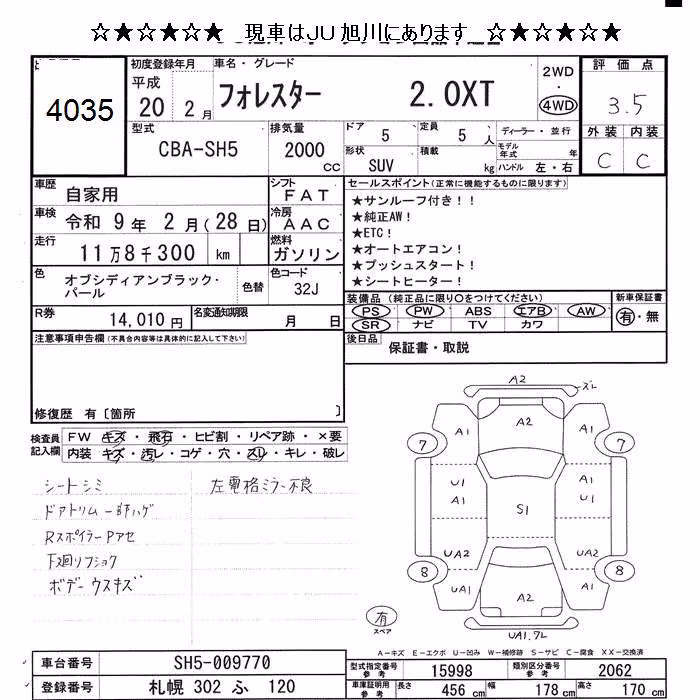 ☆★☆★☆★ 現車はJU旭川にあります ☆★☆★☆★
4035
初度登録年月
平成
20 2月
車名・グレード
フォレスター 2.0XT
2WD
・
4WD
評価点
3.5
外装 内装
C C
型式
CBA-SH5
排気量
2000
cc
ドア
5
定員
5 人
ディーラー・並行
モデル年式 年
形状
SUV
積載
kg
ハンドル 左・右
車歴
自家用
シフト
FAT
車検
令和 9年 2月(28日)
冷房
AAC
走行
11万8千300 km
燃料
ガソリン
色
オブシディアンブラック・パール
色替
色コード
32J
R券
14,010円
名変通知期限
月 日
セールスポイント(正常に機能するものに限ります)
★サンルーフ付き!!
★純正AW!
★ETC!
★オートエアコン!
★プッシュスタート!
★シートヒーター!
装備品(純正品に限り○をつけてください)
PS PW ABS エアB AW
SR ナビ TV カワ
新車保証書
有・無
後日品 保証書・取説
注意事項申告欄(不具合内容等は具体的に記入して下さい)
修復歴 有〔箇所 〕
検査員記入欄
FW キズ・飛石・ヒビ割・リペア跡・×要
内装 キズ・汚レ・コゲ・穴・スレ・キレ・破レ
シートシミ
ドアトリム一部ハゲ
RスポイラーPアセ
下廻リフショク
ボデーウスキズ
左電格ミラー不良
A2
ズレ
A1 A2 A1
7 7
U1 A1
A1 S1 U1
UA2 UA2
8 8
UA1 A2 A1
UA1.7L
有
スペア
A-キズ E-エクボ U-凹み W-補修跡 S-サビ C-腐食 XX-交換済
車台番号 SH5-009770
登録番号 札幌 302 ふ 120
型式指定番号
参考
15998
類別区分番号
参考
2062
車庫証明用
参考
長さ 456 cm 幅 178 cm 高さ 170 cm